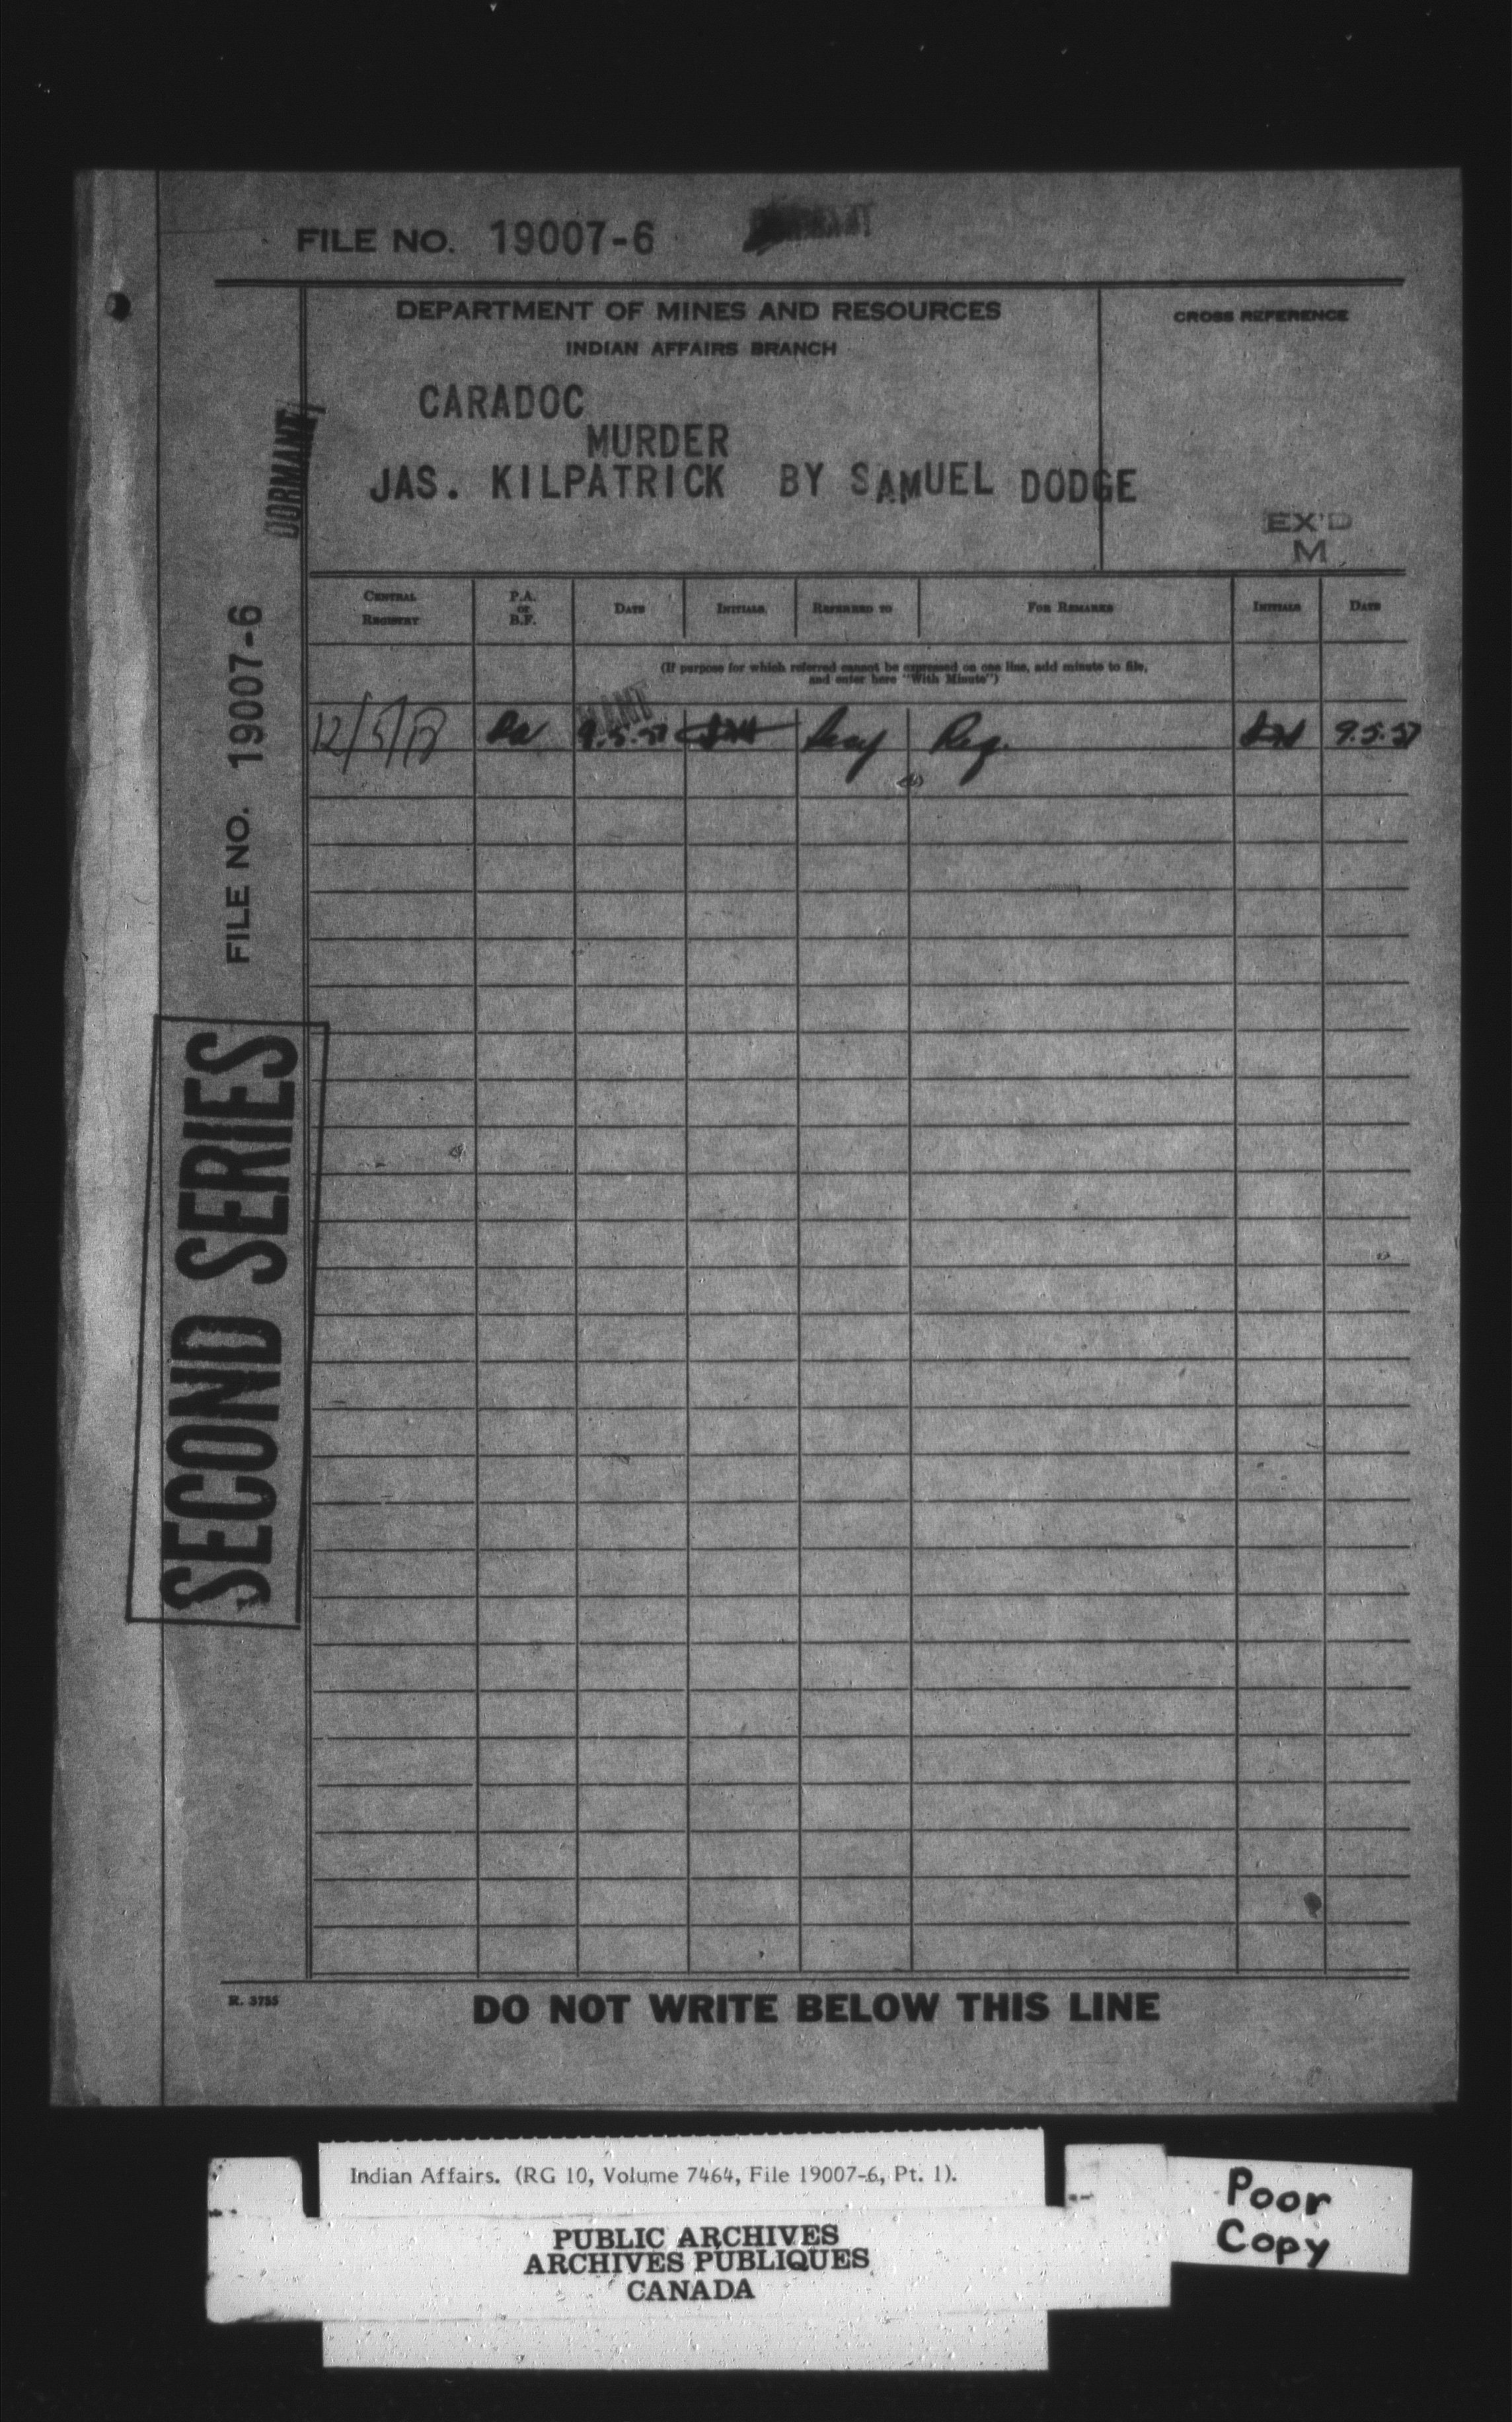 FILE NO. 19007-6
DEPARTMENT OF MINES AND RESOURCES
INDIAN AFFAIRS BRANCH
CROSS REFERENCE
CARADOC
MURDER
JAS. KILPATRICK BY SAMUEL DODGE
EX'D
M
DORMANT
FILE NO. 19007-6
SECOND SERIES
CENTRAL REGISTRY
P.A. or B.F.
DATE
INITIALS
REFERRED TO
FOR REMARKS
INITIALS
DATE
(If purpose for which referred cannot be expressed on one line, add minute to file,
and enter here "With Minute")
9.5.57 Reg. 9.5.57
R. 3755
DO NOT WRITE BELOW THIS LINE
Indian Affairs. (RG 10, Volume 7464, File 19007-6, Pt. 1).
PUBLIC ARCHIVES
ARCHIVES PUBLIQUES
CANADA
Poor
Copy